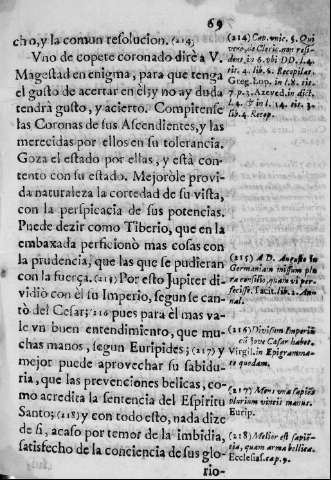 69
cho, y la comun resolucion. (214)
Vno de copete coronado dirè a V.
Magestad en enigma, para que tenga
el gusto de acertar en èl; y no ay duda
tendrà gusto, y acierto. Compitense
las Coronas de sus Ascendientes, y las
merecidas por ellos en su tolerancia.
Goza el estado por ellas, y està con-
tento con su estado. Mejoròle provi-
da naturaleza la cortedad de su vista,
con la perspicacia de sus potencias.
Puede dezir como Tiberio, que en la
embaxada perficionò mas cosas con
la prudencia, que las que se pudieran
con la fuerça. (215) Por esto Jupiter di-
vidiò con èl su Imperio, segun se can-
tò del Cesar; 216 pues para èl mas va-
le vn buen entendimiento, que mu-
chas manos, segun Euripides; (217) y
mejor puede aprovechar su sabidu-
ria, que las prevenciones belicas, co-
mo acredita la sentencia del Espiritu
Santo; (218) y con todo esto, nada dize
de si, acaso por temor de la imbidia,
satisfecho de la conciencia de sus glo-
rio-
(214) Cap. vnic. §. Qui
vero, de Cleric. non resi-
dent. in 6. vbi DD. l. 4.
tit. 4. lib. 6. Recopilat.
Greg. Lop. in l. x. tit.
7. p. 3. Azeved. in dict.
l. 4. & in l. 14. tit. 3.
lib. 4. Recop.
(215) A D. Augusto in
Germaniam missum plu
ra consilio, quam vi per-
fecisse. Tacit. lib. 2. An-
nal.
(216) Divisum Imperiũ
cũ Jove Cæsar habet.
Virgil. in Epigramma-
te quodam.
(217) Mens vna sapiẽs
plurium vincit manus.
Eurip.
(218) Melior est sapiẽ-
tia, quam arma bellica.
Ecclesiast. cap. 9.